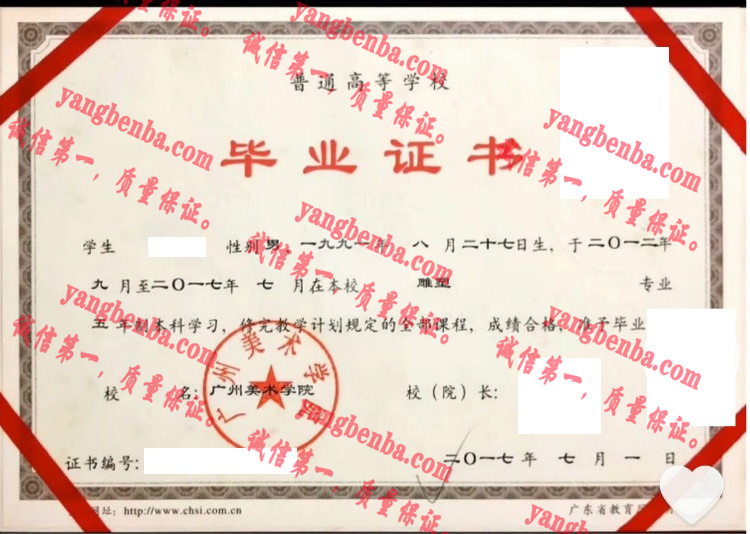 普通高等学校
毕业证书
学生 性别 男，一九九一年 八 月二十七日生，于二〇一二年
九 月至二〇一七年 七 月在本校 雕塑 专业
五 年制本科学习，修完教学计划规定的全部课程，成绩合格，准予毕业
校 名：广州美术学院 校（院）长：
广州美术学院
证书编号： 二〇一七年 七 月 一 日
网址：http://www.chsi.com.cn 广东省教育厅
yangbenba.com
诚信第一，质量保证。
yangbenba.com
诚信第一，质量保证。
yangbenba.com
诚信第一，质量保证。
yangbenba.com
诚信第一，质量保证。
yangbenba.com
诚信第一，质量保证。
yangbenba.com
诚信第一，质量保证。
yangbenba.com
诚信第一，质量保证。
yangbenba.com